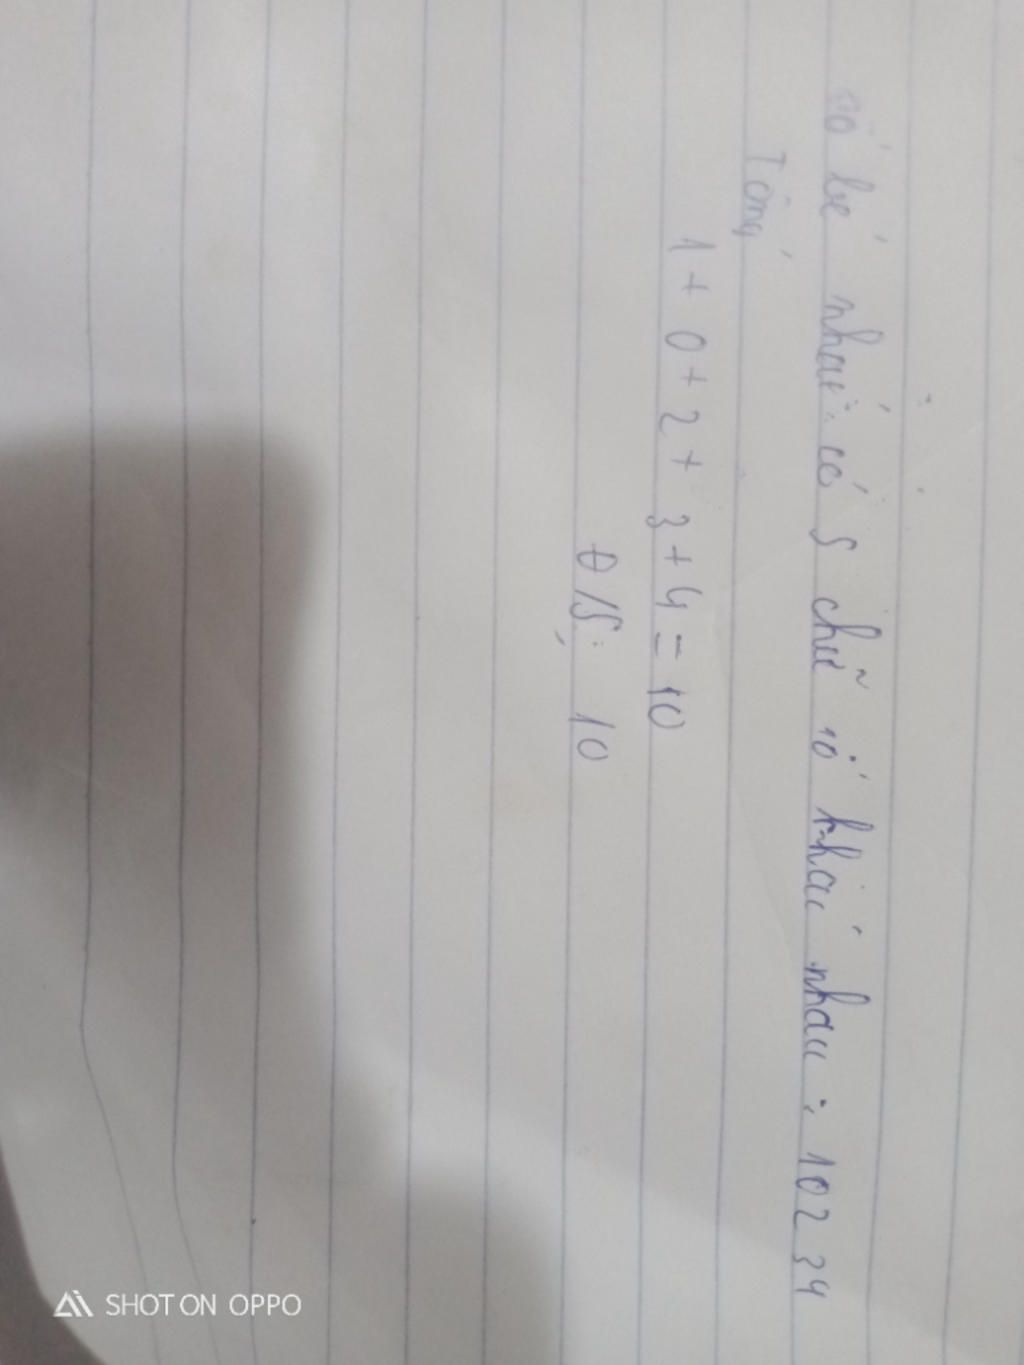 số bé nhất có 5 chữ số khác nhau : 10234
Tổng
1 + 0 + 2 + 3 + 4 = 10
Đ/S: 10
SHOT ON OPPO